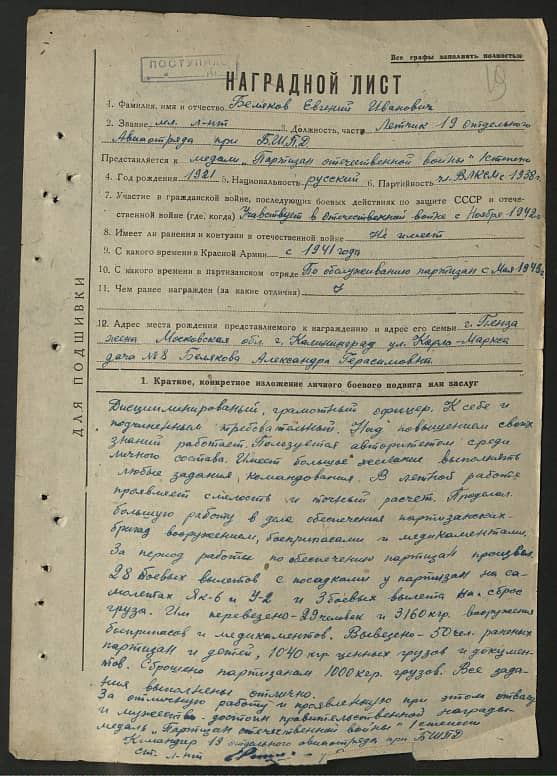 Все графы заполнять полностью
ПОСТУПИЛО
19
НАГРАДНОЙ ЛИСТ
1. Фамилия, имя и отчество Беляков Евгений Иванович
2. Звание мл. л-нт 3. Должность, часть Летчик 19 отдельного
Авиаотряда при БШПД
Представляется к медали "Партизан отечественной войны" I степени
4. Год рождения 1921 5. Национальность русский 6. Партийность чл. ВЛКСМ с 1938 г
7. Участие в гражданской войне, последующих боевых действиях по защите СССР и отече-
ственной войне (где, когда) Учавствует в отечественной войне с Ноября 1942 г
8. Имеет ли ранения и контузии в отечественной войне Не имеет
9. С какого времени в Красной Армии с 1941 года
10. С какого времени в партизанском отряде По обслуживанию партизан с Мая 1943 г
11. Чем ранее награжден (за какие отличия)
12. Адрес места рождения представляемого к награждению и адрес его семьи г. Пенза
жена Московская обл. г. Калининград ул. Карла-Маркса
дача №8 Белякова Александра Герасимовна
ДЛЯ ПОДШИВКИ
1. Краткое, конкретное изложение личного боевого подвига или заслуг
Дисциплинированый, грамотный офицер. К себе и
подчиненным требовательный. Над повышением своих
знаний работает. Пользуется авторитетом среди
личного состава. Имеет большое желание выполнять
любые задания, командования. В летной работе
проявляет смелость и точный расчет. Проделал
большую работу в деле обеспечения партизанских-
бригад вооружением, боеприпасами и медикаментами.
За период работы по обеспечению партизан произвел
28 боевых вылетов с посадками у партизан на са-
молетах Як-6 и У-2 и 3 боевых вылета на сброс
груза. Им перевезено-29 человек и 3160 кгр. вооружения
боеприпасов и медикаментов. Вывезено-50 чел. раненых
партизан и детей, 1040 кгр ценных грузов и докумен-
тов. Сброшено партизанам 1000 кгр. грузов. Все зада-
ния выполнены отлично.
За отличную работу и проявленную при этом отвагу
и мужество достоин правительственной награды
медаль "Партизан отечественной войны I степени
Командир 19 отдельного авиаотряда при БШПД
Ст. л-нт